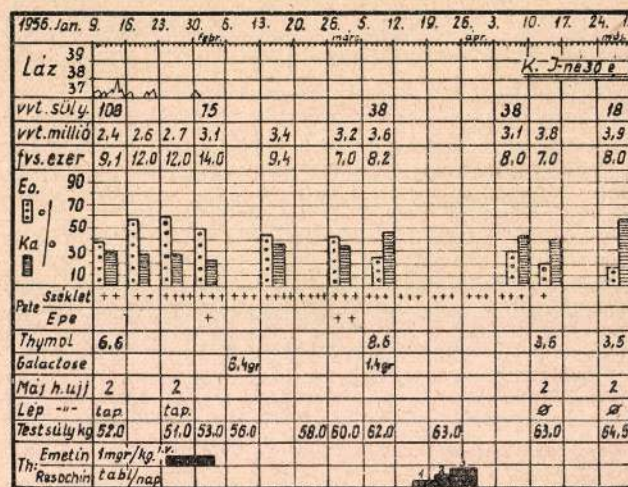 1956. Jan. 9. 16. 23. 30. 6. 13. 20. 26. 5. 12. 19. 26. 3. 10. 17. 24. 1.
febr. márc. ápr. máj.
Láz 39
38
37
K. J-né 30 é
vvt. süly. 108 75 38 38 18
vvt. millió 2.4 2.6 2.7 3.1 3.4 3.2 3.6 3.1 3.8 3.9
fvs. ezer 9,1 12.0 12.0 14.0 9.4 7,0 8.2 8.0 7.0 8.0
Eo. % 90
70
50
Ka 30
10
Pete Széklet ++ ++ ++++ +++ +++ +++ ++++ +++ +++ +++ +++ +++ +++ +
Epe + ++
Thymol 6.6 8.6 3,6 3,5
Galactose 6.4gr 1.4gr
Máj h.ujj 2 2 2 2
Lép -"- tap. tap. ø ø
Testsúly kg 52.0 51.0 53.0 56.0 58.0 60.0 62.0 63.0 63.0 64.5
Th: Emetin 1mgr/kg. i.v.
Resochin tabl/nap 1 2 3